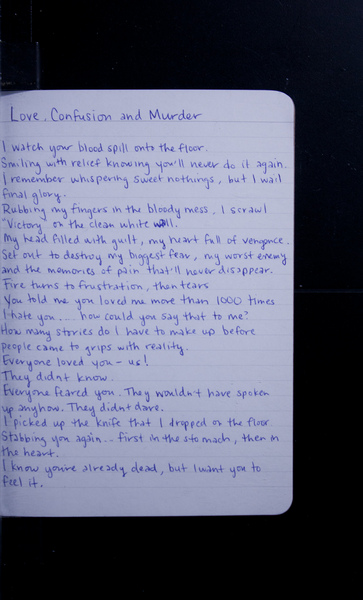 Love, Confusion and Murder
I watch your blood spill onto the floor.
Smiling with relief knowing you'll never do it again.
I remember whispering sweet nothings, but I wail
final glory.
Rubbing my fingers in the bloody mess, I scrawl
"Victory" on the clean white wall.
My head filled with guilt, my heart full of vengance.
Set out to destroy my biggest fear, my worst enemy
and the memories of pain that'll never disappear.
Fire turns to frustration, then tears
You told me you loved me more than 1000 times
I hate you.... how could you say that to me?
How many stories do I have to make up before
people came to grips with reality.
Everyone loved you - us!
They didnt know.
Everyone feared you. They wouldn't have spoken
up anyhow. They didnt dare.
I picked up the knife that I dropped on the floor
Stabbing you again... first in the stomach, then in
the heart.
I know you're already dead, but I want you to
feel it.